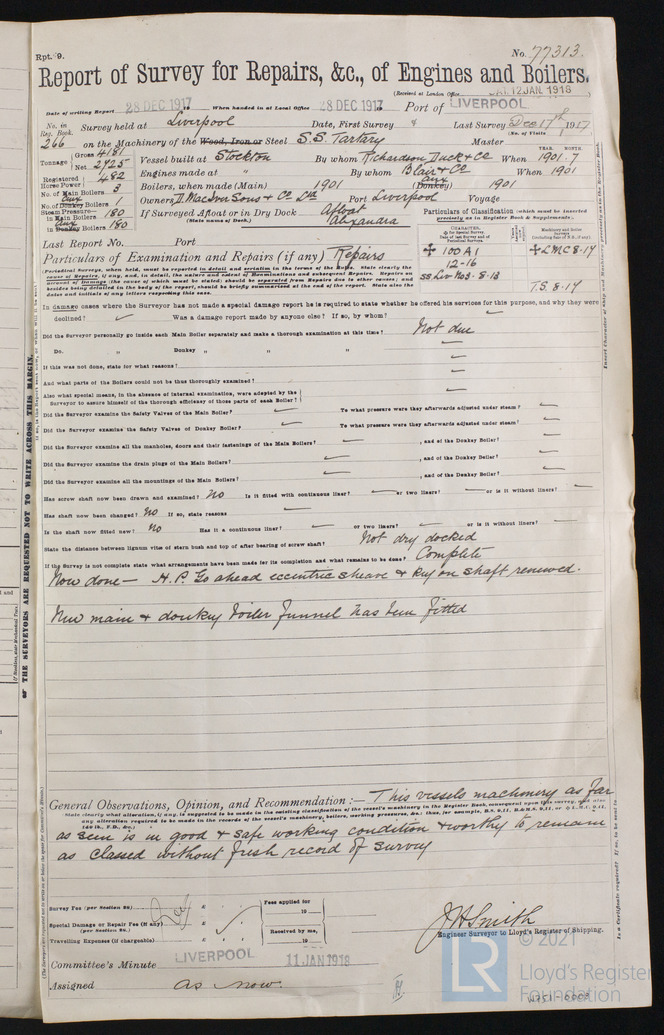 Rpt. 9.
No. 77313.
Report of Survey for Repairs, &c., of Engines and Boilers.
(Received at London Office SAT. 12 JAN. 1918
Date of writing Report 28 DEC 1917 When handed in at Local Office 28 DEC 1917 Port of LIVERPOOL
No. in Reg. Book. Survey held at Liverpool Date, First Survey Last Survey Dec 17th 1917
(No. of Visits
266 on the Machinery of the Wood, Iron or Steel S.S. Tartary Master
Tonnage Gross 4181 Net 2725 Vessel built at Stockton By whom Richardson Duck & Co When YEAR. 1901 MONTH. 7
Registered Horse Power 482 Engines made at " By whom Blair & Co When 1901
No. of Main Boilers 3 Boilers, when made (Main) 1901 (Donkey) aux 1901
No. of Donkey Boilers aux 1 Owners D. MacIver Sons & Co Ltd Port Liverpool Voyage
Steam Pressure in Main Boilers 180 If Surveyed Afloat or in Dry Dock Afloat
in Donkey Boilers aux 180 (State name of Dock.) Alexandra
Particulars of Classification (which must be inserted precisely as in Register Book & Supplements).
Last Report No. Port
Particulars of Examination and Repairs (if any) Repairs
✠ 100 A1 ✠ LMC 8-17
12-16
SS Liv No3-8-13 T.S. 8-17
In damage cases where the Surveyor has not made a special damage report he is required to state whether he offered his services for this purpose, and why they were
declined? Was a damage report made by anyone else? If so, by whom?
Did the Surveyor personally go inside each Main Boiler separately and make a thorough examination at this time? Not due
Do. " Donkey " " "
If this was not done, state for what reasons?
And what parts of the Boilers could not be thus thoroughly examined?
Also what special means, in the absence of internal examination, were adopted by the
Surveyor to assure himself of the thorough efficiency of those parts of each Boiler?
Did the Surveyor examine the Safety Valves of the Main Boiler? To what pressure were they afterwards adjusted under steam?
Did the Surveyor examine the Safety Valves of Donkey Boiler? To what pressure were they afterwards adjusted under steam?
Did the Surveyor examine all the manholes, doors and their fastenings of the Main Boilers? , and of the Donkey Boiler?
Did the Surveyor examine the drain plugs of the Main Boilers? , and of the Donkey Boiler?
Did the Surveyor examine all the mountings of the Main Boilers? , and of the Donkey Boiler?
Has screw shaft now been drawn and examined? No Is it fitted with continuous liner? or two liners? or is it without liners?
Has shaft now been changed? No If so, state reasons
Is the shaft now fitted new? No Has it a continuous liner? or two liners? or is it without liners?
State the distance between lignum vitæ of stern bush and top of after bearing of screw shaft? Not dry docked
If the Survey is not complete state what arrangements have been made for its completion and what remains to be done? Complete
Now done — H.P. Go ahead eccentric sheave & key on shaft renewed.
New main & donkey boiler funnel has been fitted
General Observations, Opinion, and Recommendation:— This vessels machinery as far
as seen is in good & safe working condition & worthy to remain
as classed without fresh record of survey
Survey Fee (per Section 28) £ Fees applied for
19
Special Damage or Repair Fee (if any) £
(per Section 28.) Received by me,
Travelling Expenses (if chargeable) £ 19
JH Smith
Engineer Surveyor to Lloyd's Register of Shipping.
Committee's Minute LIVERPOOL 11 JAN 1918
Assigned as now.
OF THE SURVEYORS ARE REQUESTED NOT TO WRITE ACROSS THIS MARGIN.
LR
© 2021
Lloyd's Register
Foundation